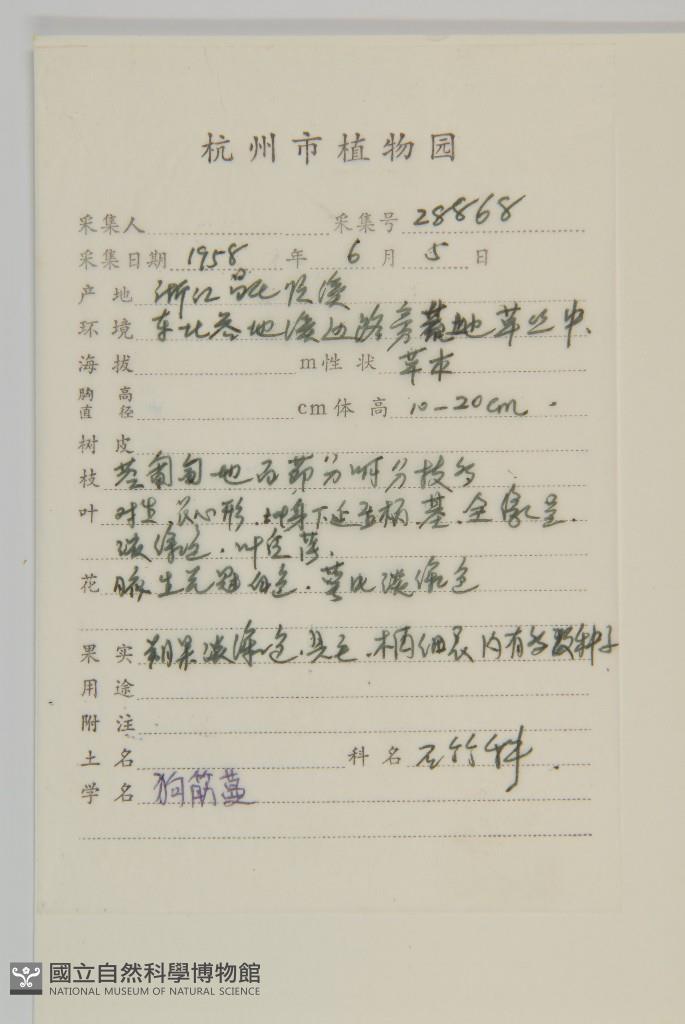 杭州市植物园
采集人 采集号 28868
采集日期 1958 年 6 月 5 日
产地 浙江昌化顺溪
环境 东北 地溪边路旁 地草丛中、
海拔 m 性状 草本
胸高直径 cm 体高 10-20cm.
树皮
枝 茎匍匐地面节分 分枝多
叶 对生 心形. 下延至柄. 基. 全缘呈.
淡绿色. 叶 薄.
花 腋生 白色. 萼 淡绿色
果实 朔果淡绿色. 柄细长内有多数种子
用途
附注
土名 科名 石竹科.
学名 狗筋蔓
國立自然科學博物館
NATIONAL MUSEUM OF NATURAL SCIENCE